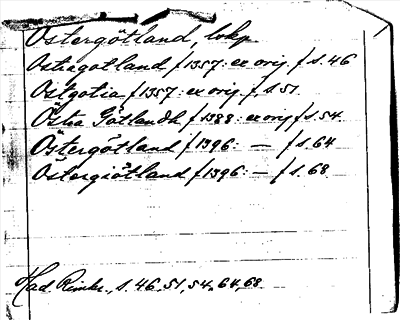 Östergötland, lskp
Ostregotland f 1357: ex orig. f s. 46
Ostgotia f 1357: ex orig. f, s. 51.
Östra Götlandh f 1388: ex orig f s. 54.
Östergötland f 1396: — f s. 64
Östergiötland f 1396: — f s. 68.
Had. Rimkr., s. 46, 51, 54, 64, 68.